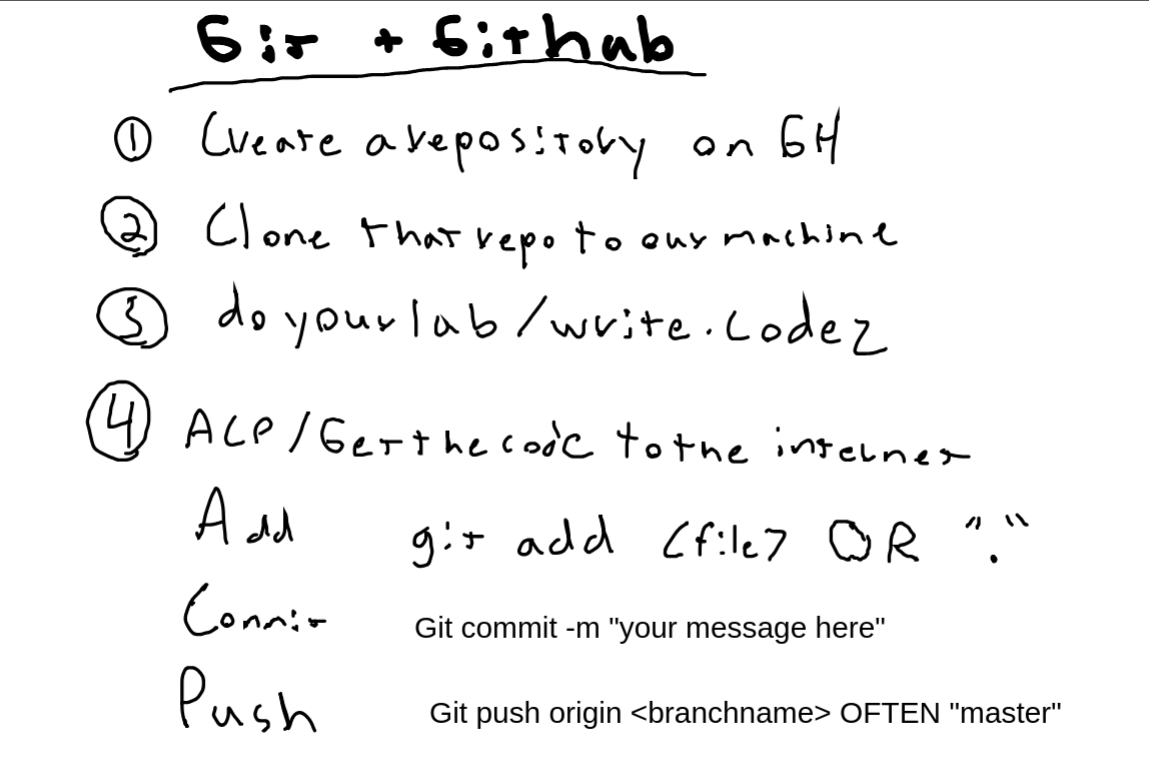 Git + Github
① Create a repository on GH
② Clone that repo to our machine
③ do your lab/write.codez
④ ACP/Get the code to the internet
Add git add <file> OR "."
Commit Git commit -m "your message here"
Push Git push origin <branchname> OFTEN "master"